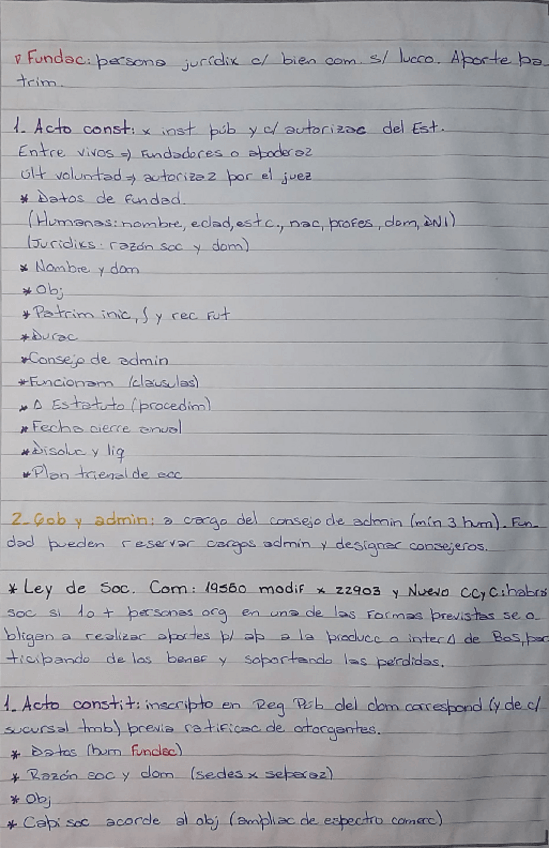 ▿ Fundac: persona jurídix c/ bien com. s/ lucro. Aporte pa
trim.
1. Acto const: x inst púb y c/ autorizac del Est.
Entre vivos ⇒ Fundadores o apoderaz
Ult voluntad ⇒ autorizaz por el juez
* Datos de fundad.
(Humanas: nombre, edad, est c., nac, profes, dom, DNI)
(Jurídiks: razón soc y dom)
* Nombre y dom
* Obj
* Patrim inic, ∫ y rec fut
* Durac
* Consejo de admin
* Funcionam (clausulas)
* Δ Estatuto (procedim)
* Fecha cierre anual
* Disoluc y liq
* Plan trienal de acc
2. Gob y admin: a cargo del consejo de admin (mín 3 hum). Fun-
dad pueden reservar cargos admin y designar consejeros.
* Ley de Soc. Com: 19550 modif x 22903 y Nuevo CCyC: habrá
soc si 1 o + personas org en una de las formas previstas se o
bligan a realizar aportes p/ ap a la producc o interΔ de Bos, par
ticipando de los benef y soportando las pérdidas.
1. Acto constit: inscripto en Reg Púb del dom correspond (y de c/
sucursal tmb) previa ratificac de otorgantes.
* Datos (hum Fundac)
* Razón soc y dom (sedes x separaz)
* Obj
* Capi soc acorde al obj (ampliac de espectro comerc)